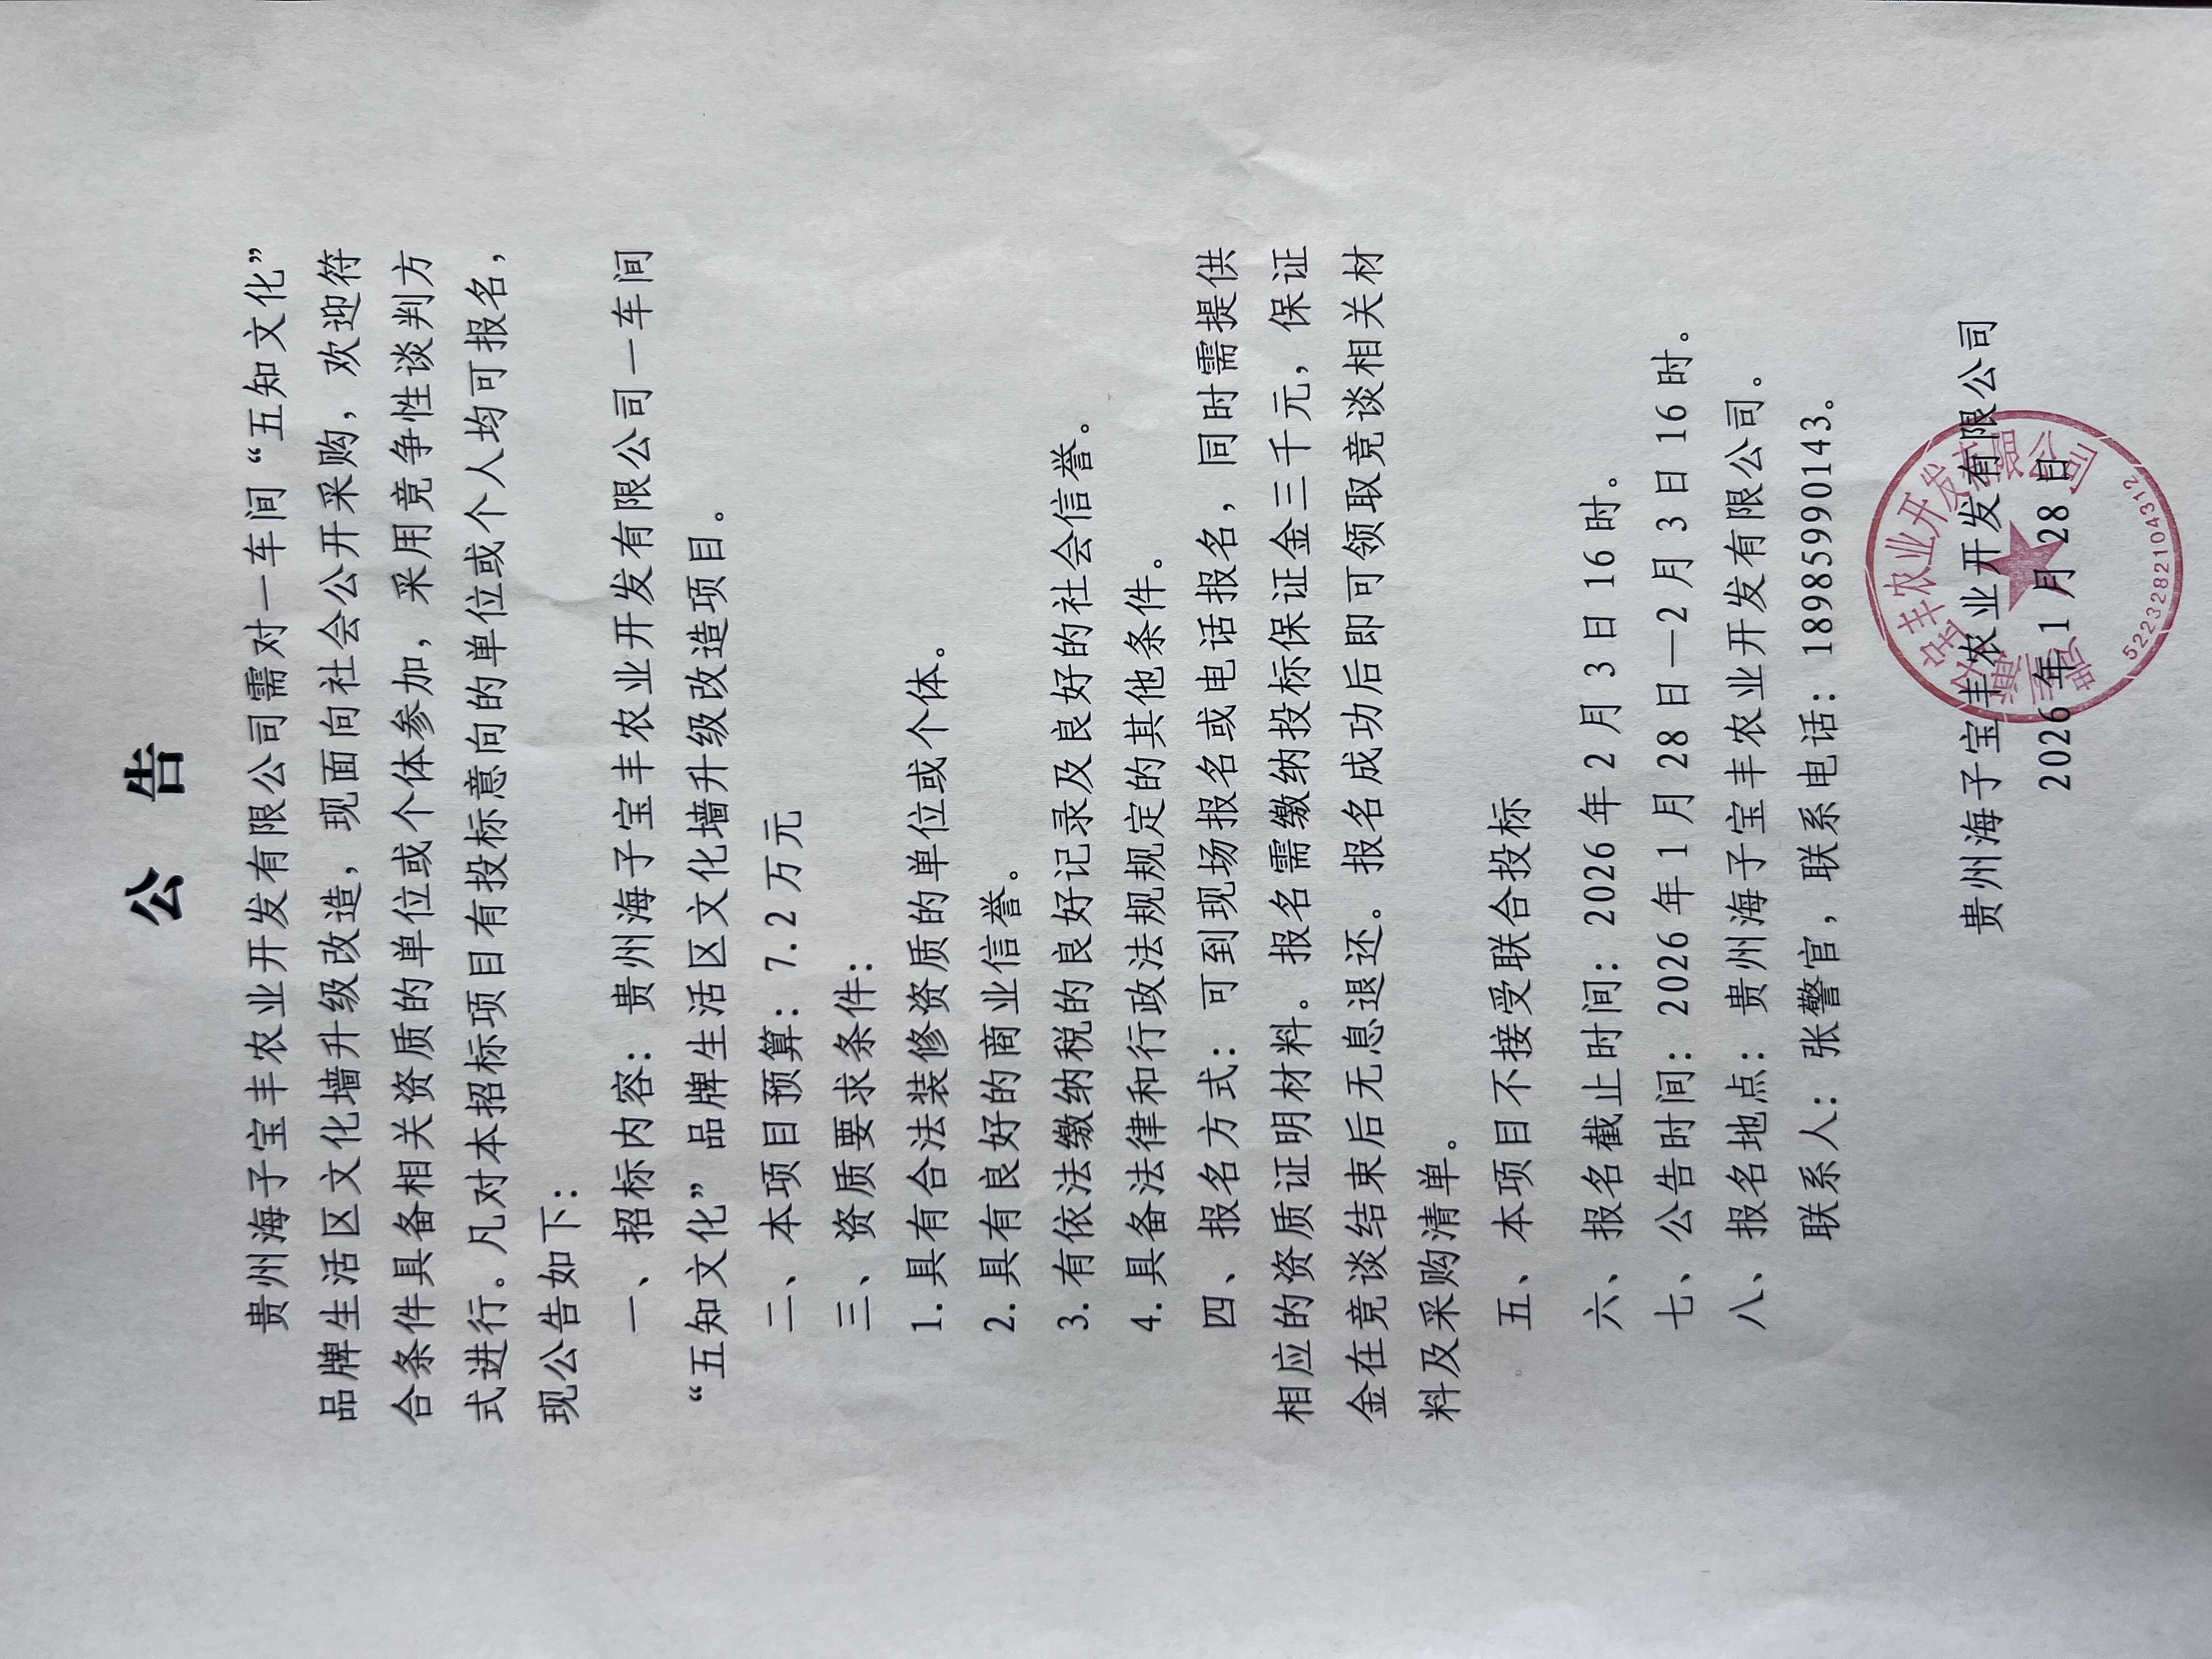 公 告
贵州海子宝丰农业开发有限公司需对一车间“五知文化”
品牌生活区文化墙升级改造，现面向社会公开采购，欢迎符
合条件具备相关资质的单位或个体参加，采用竞争性谈判方
式进行。凡对本招标项目有投标意向的单位或个人均可报名，
现公告如下：
一、招标内容：贵州海子宝丰农业开发有限公司一车间
“五知文化”品牌生活区文化墙升级改造项目。
二、本项目预算：7.2万元
三、资质要求条件：
1.具有合法装修资质的单位或个体。
2.具有良好的商业信誉。
3.有依法缴纳税的良好记录及良好的社会信誉。
4.具备法律和行政法规规定的其他条件。
四、报名方式：可到现场报名或电话报名，同时需提供
相应的资质证明材料。报名需缴纳投标保证金三千元，保证
金在竞谈结束后无息退还。报名成功后即可领取竞谈相关材
料及采购清单。
五、本项目不接受联合投标
六、报名截止时间：2026年2月3日16时。
七、公告时间：2026年1月28日—2月3日16时。
八、报名地点：贵州海子宝丰农业开发有限公司。
联系人：张警官，联系电话：18985990143。
贵州海子宝丰农业开发有限公司
2026年1月28日
宝丰农业开发有限公司
5223282104312